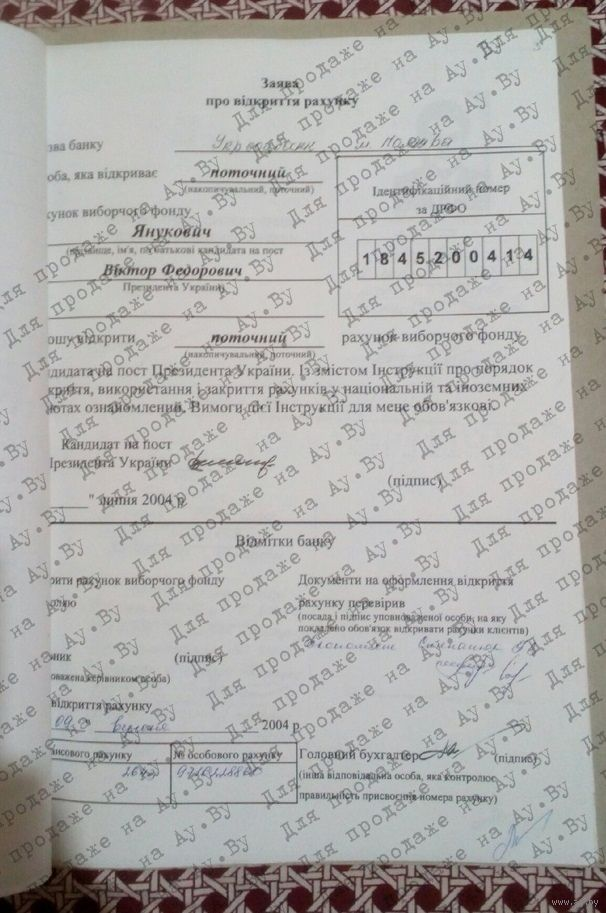 Заява
про відкриття рахунку
зва банку м. Полтава
оба, яка відкриває поточний
(накопичувальний, поточний)
Ідентифікаційний номер
за ДРФО
1845200414
хунок виборчого фонду
Янукович
(прізвище, ім'я, по батькові кандидата на пост
Віктор Федорович
Президента України)
ошу відкрити поточний рахунок виборчого фонду
(накопичувальний, поточний)
ндидата на пост Президента України. Із змістом Інструкції про порядок
криття, використання і закриття рахунків у національній та іноземних
лютах ознайомлений. Вимоги цієї Інструкції для мене обов'язкові.
Кандидат на пост
Президента України
(підпис)
" липня 2004 р
Відмітки банку
рити рахунок виборчого фонду
олю
Документи на оформлення відкриття
рахунку перевірив
(посада і підпис уповноваженої особи, на яку
покладено обов'язок відкривати рахунки клієнтів)
економіст
ник (підпис)
оважена керівником особа)
відкриття рахунку
09 " вересня 2004 р.
нсового рахунку № особового рахунку
Головний бухгалтер (підпис)
(інша відповідальна особа, яка контролює
правильність присвоєння номера рахунку)
Для продаже на Ау.Ву
www.ay.by